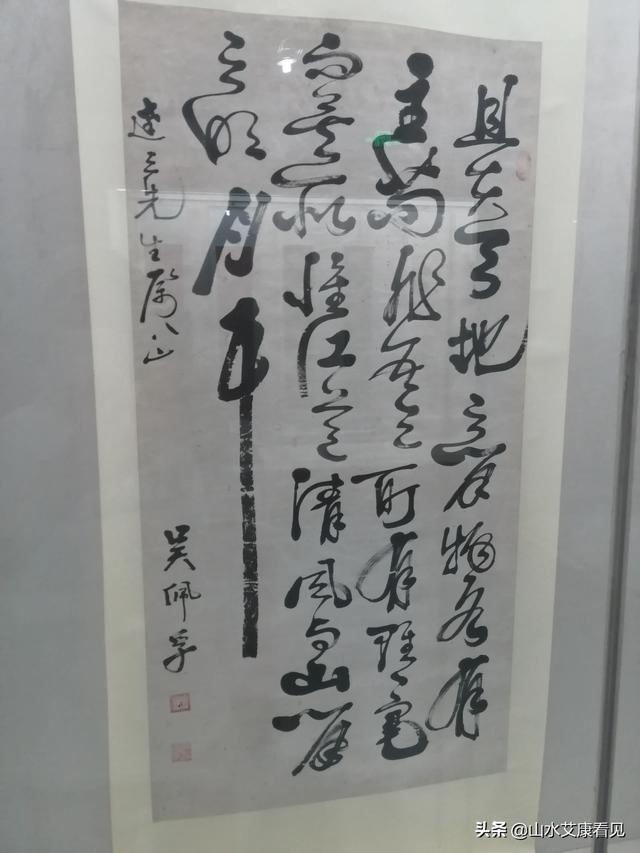 且夫天地之间物各有
主苟非吾之所有雖一毫
而莫取惟江上之清风与山间
之明月耳
達三先生属正
吴佩孚
头条 @山水艾康看见